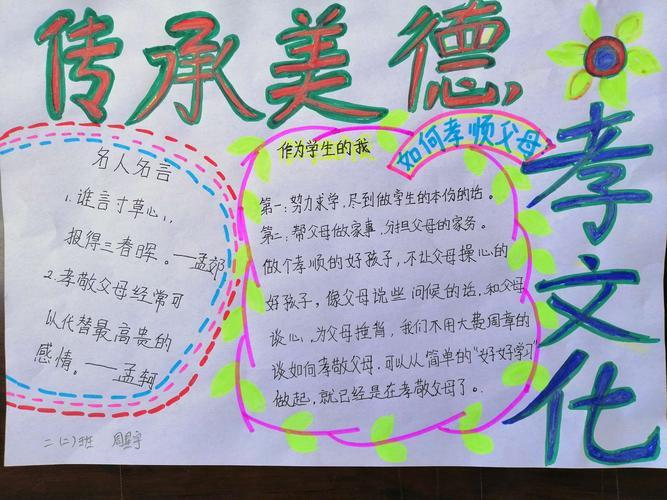 传承美德
孝文化
名人名言
1.谁言寸草心，
报得三春晖。——孟郊
2.孝敬父母经常可
以代替最高贵的
感情。——孟轲
二(二)班
如何孝顺父母
作为学生的我
第一:努力求学,尽到做学生的本份的话。
第二:帮父母做家事,分担父母的家务。
做个孝顺的好孩子,不让父母操心的
好孩子,像父母说些问候的话,和父母
谈心,为父母捶背,我们不用大费周章的
谈如何孝敬父母,可以从简单的“好好学习”
做起,就已经是在孝敬父母了。